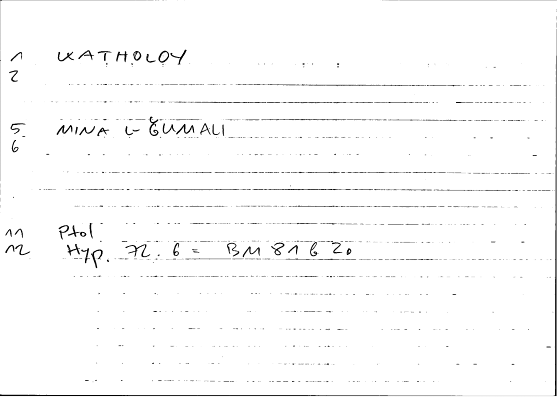 1 KATHOLOY
2
5 MINA L-ǦUMALI
6
11 Ptol
12 Hyp. 72.6 = BM 81620